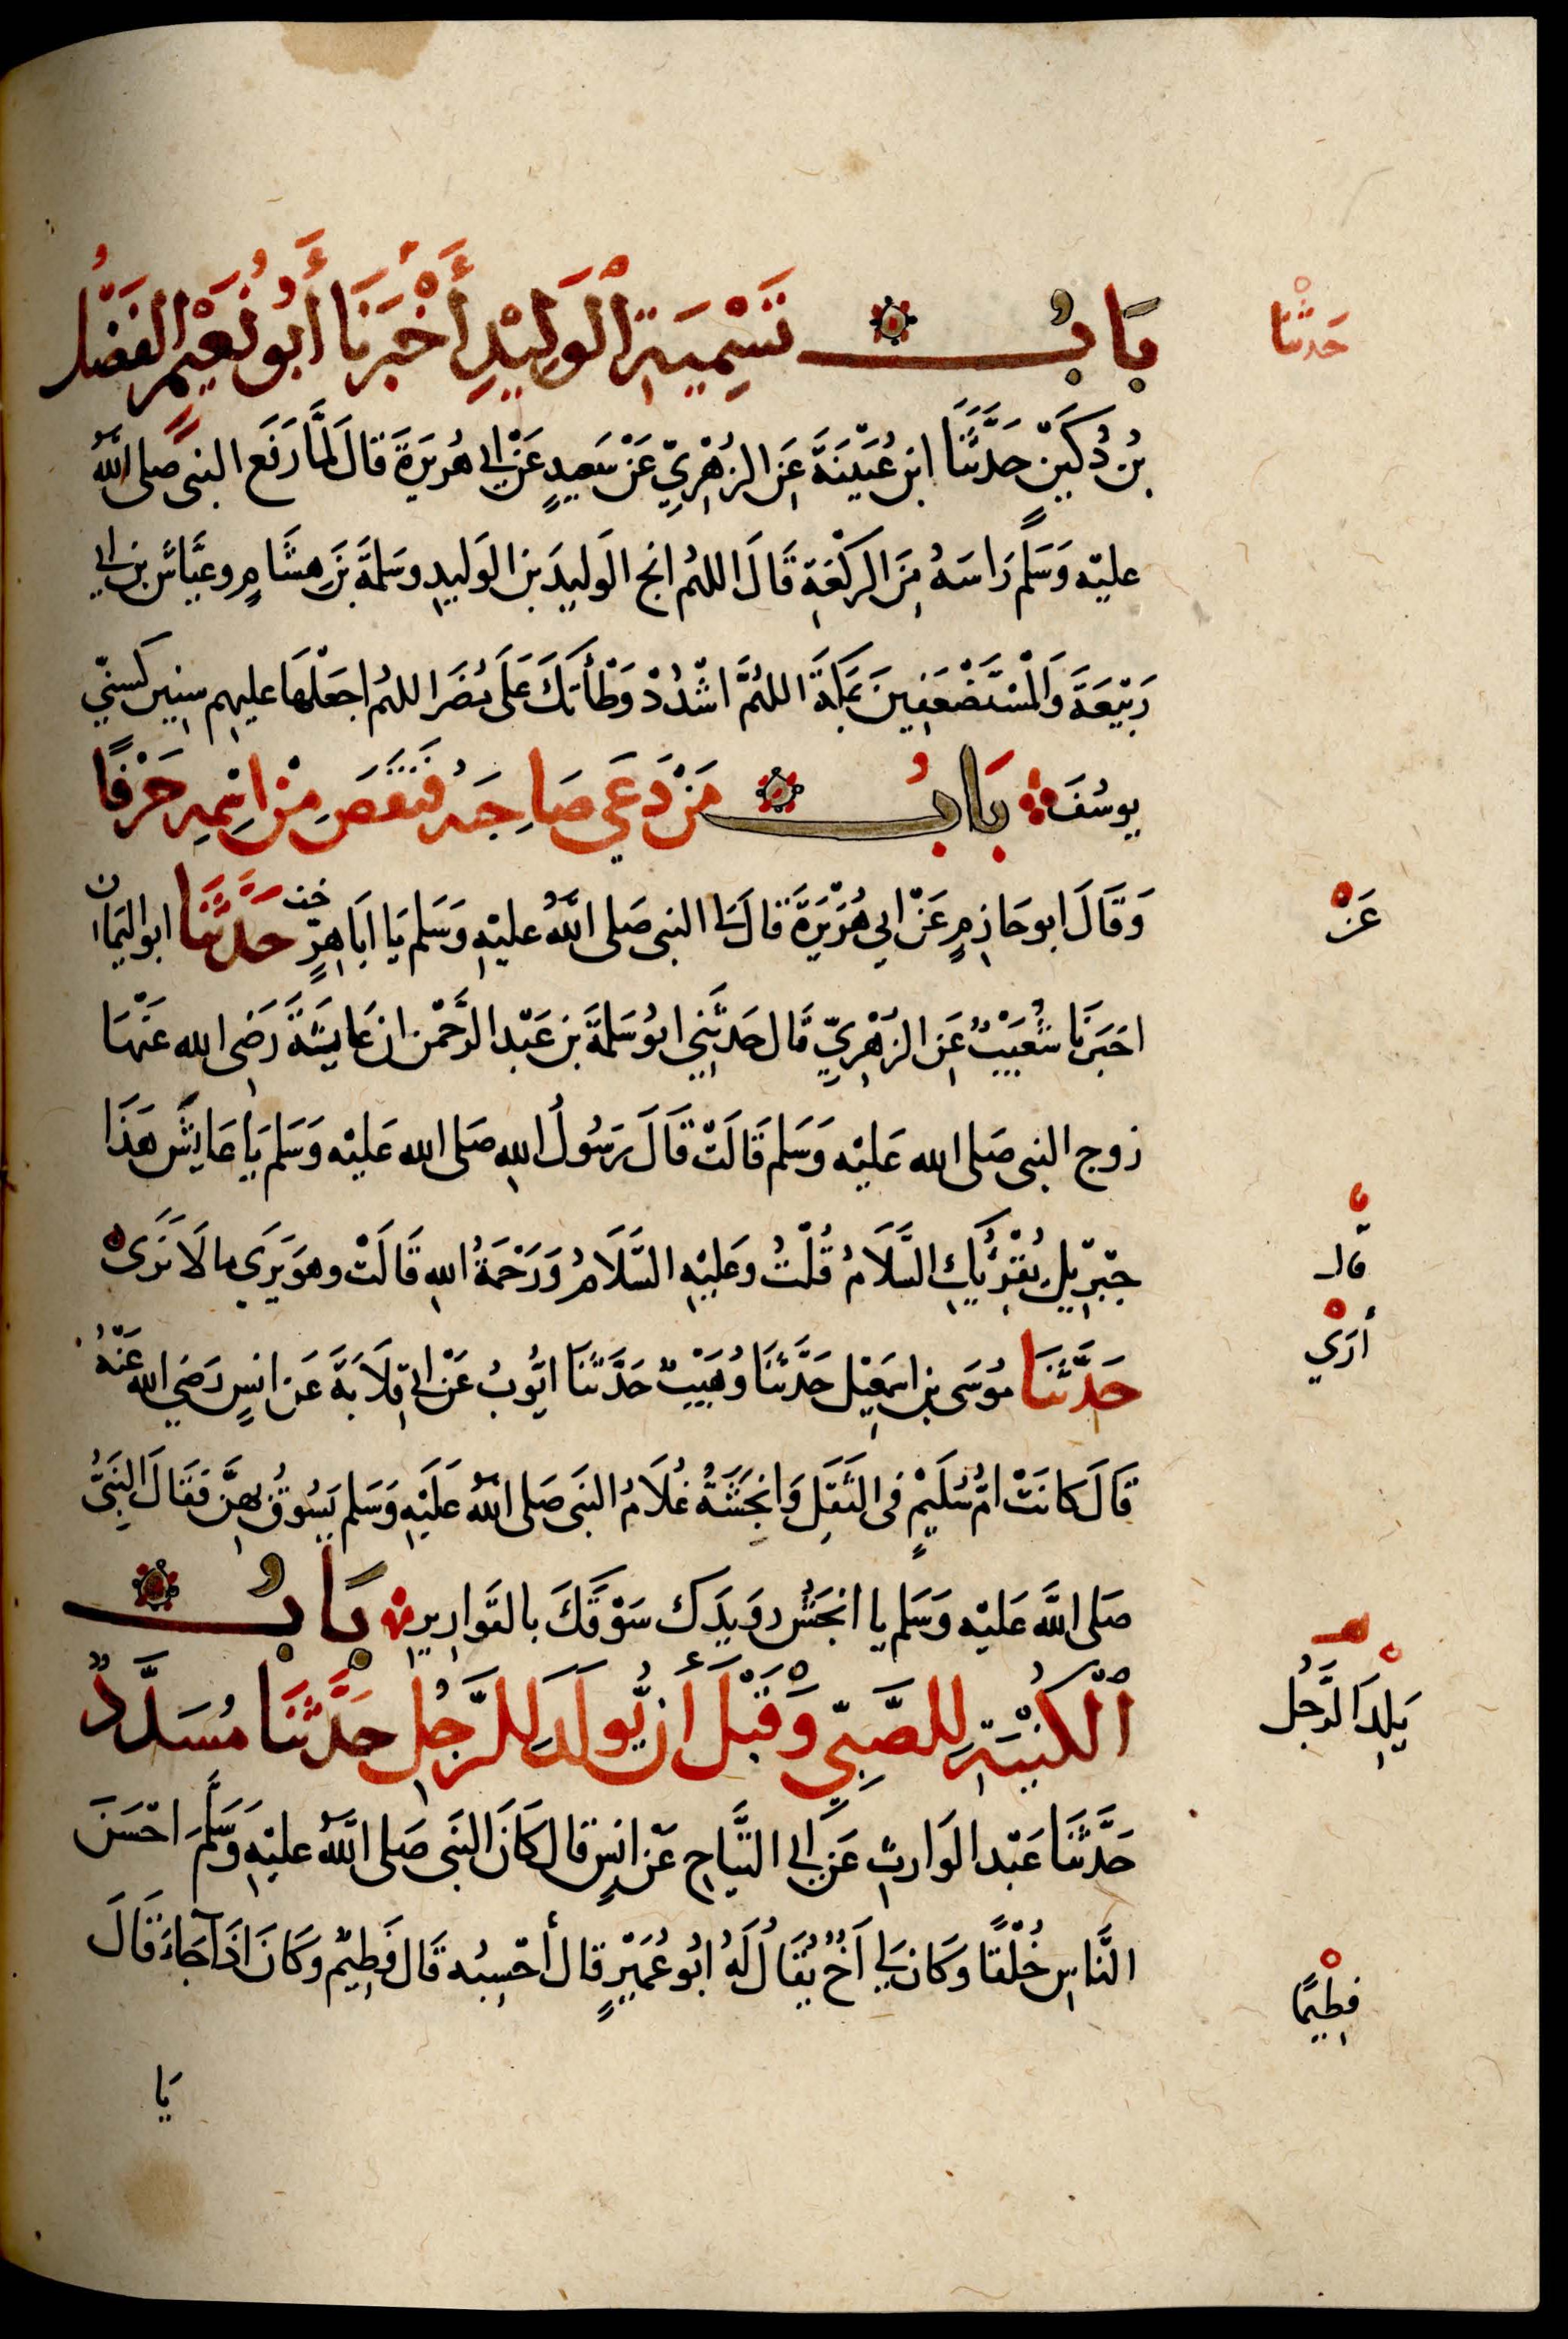 بَابُ تَسْمِيَةِ الْوَلِيْدِ أَخْبَرَنَا أَبُو نُعَيْمٍ الفَضْلُ
حَدثنَا
بْنُ دُكَيْنٍ حَدَّثَنَا ابن عُيَيْنَةَ عَنِ الزُهْرِيِّ عَنْ سَعِيدٍ عَنْ ابي هُرَيرَةَ قالَ لَمَّا رَفَع النبى صلى اللهُ
عليْه وَسَلَّم رَاسَهُ مِنَ الرَكْعَةِ قَالَ اللهُم انج الوَليدَ بن الوَليدِ وسَلمَةَ بْنَ هِشَامٍ وعَيَّاشَ بن ابي
رَبِيْعَةَ وَالمُسْتَضْعَفِينَ بمَكَةَ اللهُمَّ اشْدُدْ وَطْأَتَكَ عَلَى مُضَرَ اللهُم اجعَلْهَا عليهِم سِنِين كَسِنِيّ
يوسُفَ بَابُ مَنْ دَعَى صَاحِبَهُ فَنَقَصَ مِنْ اسْمِهِ حَرْفًا
وَقَالَ ابو حَازِمٍ عَنْ ابي هُرَيْرَةَ قالَ لي النبى صَلى اللَّهُ عليْهِ وَسَلم يَا ابَا هِرٍّ حَدَّثَنَا ابو اليَمان
عَنْ
اخبَرنَا شُعَيْبٌ عَنِ الزهْرِيّ قال حَدثَنِي ابوُ سَلمَةَ بن عَبْد الرَّحْمن ان عَايِشَةَ رَضِى الله عَنْهَا
زوج النبى صَلى الله عَليْه وَسَلم قَالَتْ قَالَ رَسُولُ اللهِ صَلى الله عَليْه وَسَلم يَا عَايِشَ هَذَا
جِبْرِيْلُ يُقْرِئُكِ السَّلَامُ قُلْتُ وَعَليْهِ السَّلَامُ وَرَحْمَةُ اللهِ قَالَتْ وهوَ يَرَى مالَا نَرَى
قال
أَرَي
حَدَّثَنَا مُوسَى بن اسمَعِيْل حَدَّثَنَا وُهَيْبٌ حَدَّثَنَا ايُّوبُ عَنْ ابي قِلَابَةَ عَن انسٍ رَضِيَ الله عَنْهُ
قَالَ كَانَتْ امُّ سُلَيْمٍ فى الثَقَلِ وَانجَشَةُ غُلَامُ النبَى صَلى اللهُ عَلَيْهِ وَسَلم يَسُوقُ بهِنَّ فَقَالَ النَبِىُّ
صَلى اللهَ عَليْه وَسَلم يا انجَشُ رُوَيدَك سَوْقَكَ بالقَوارِيرِ بَابُ
الْكُنْيَةِ لِلصَّبِيّ وَقَبْلَ أَنْ يُّولَدَ لِلرَّجُلِ حَدَّثَنَا مُسَدَّدٌ
يَلِدَ الرَّجُل
حَدَّثَنَا عَبْد الوَارثِ عَن ابي التَّيَاحِ عَنْ انسٍ قال كَانَ النبَى صَلى اللَّهُ عليْهِ وَسَلَّمَ احْسَنَ
النَّاسِ خُلْقًا وَكَانَ لِي اَخٌ يُقَالُ لَهُ ابُو عُمَيْرٍ قال أَحْسِبُه قَال فَطِيْمٌ وَكَانَ اذَا جَاءَ قَالَ
فطِيمًا
يَا